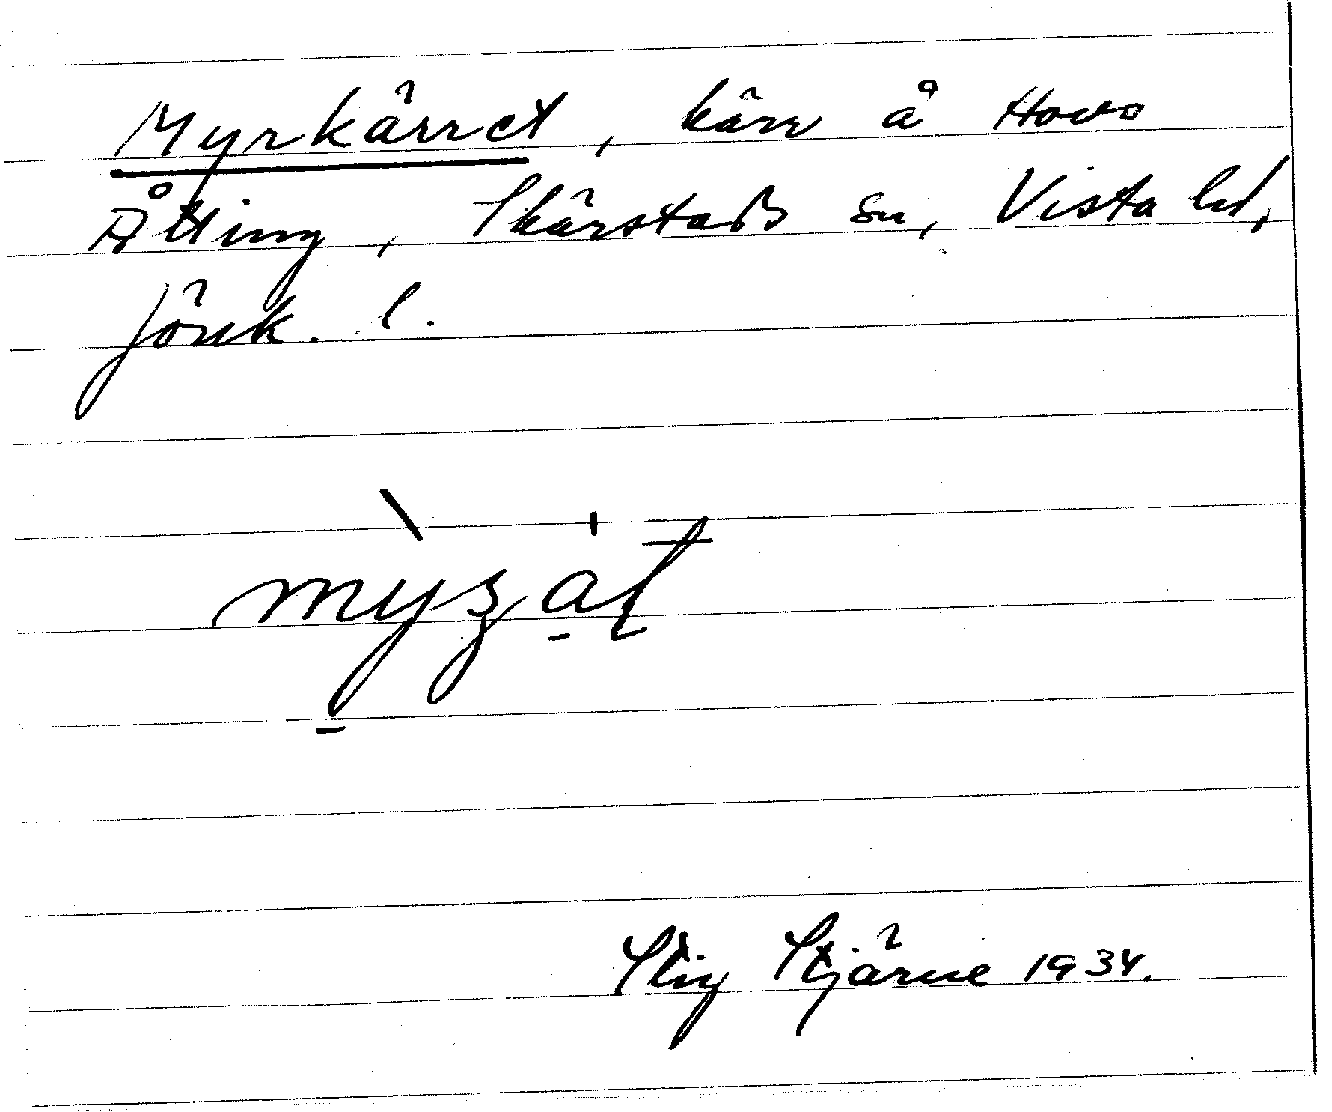 Myrkärret, kärr å Hovs
Åtting, Skärstads sn, Vista hd,
Jönk. l.
Stig Stjärne 1934.